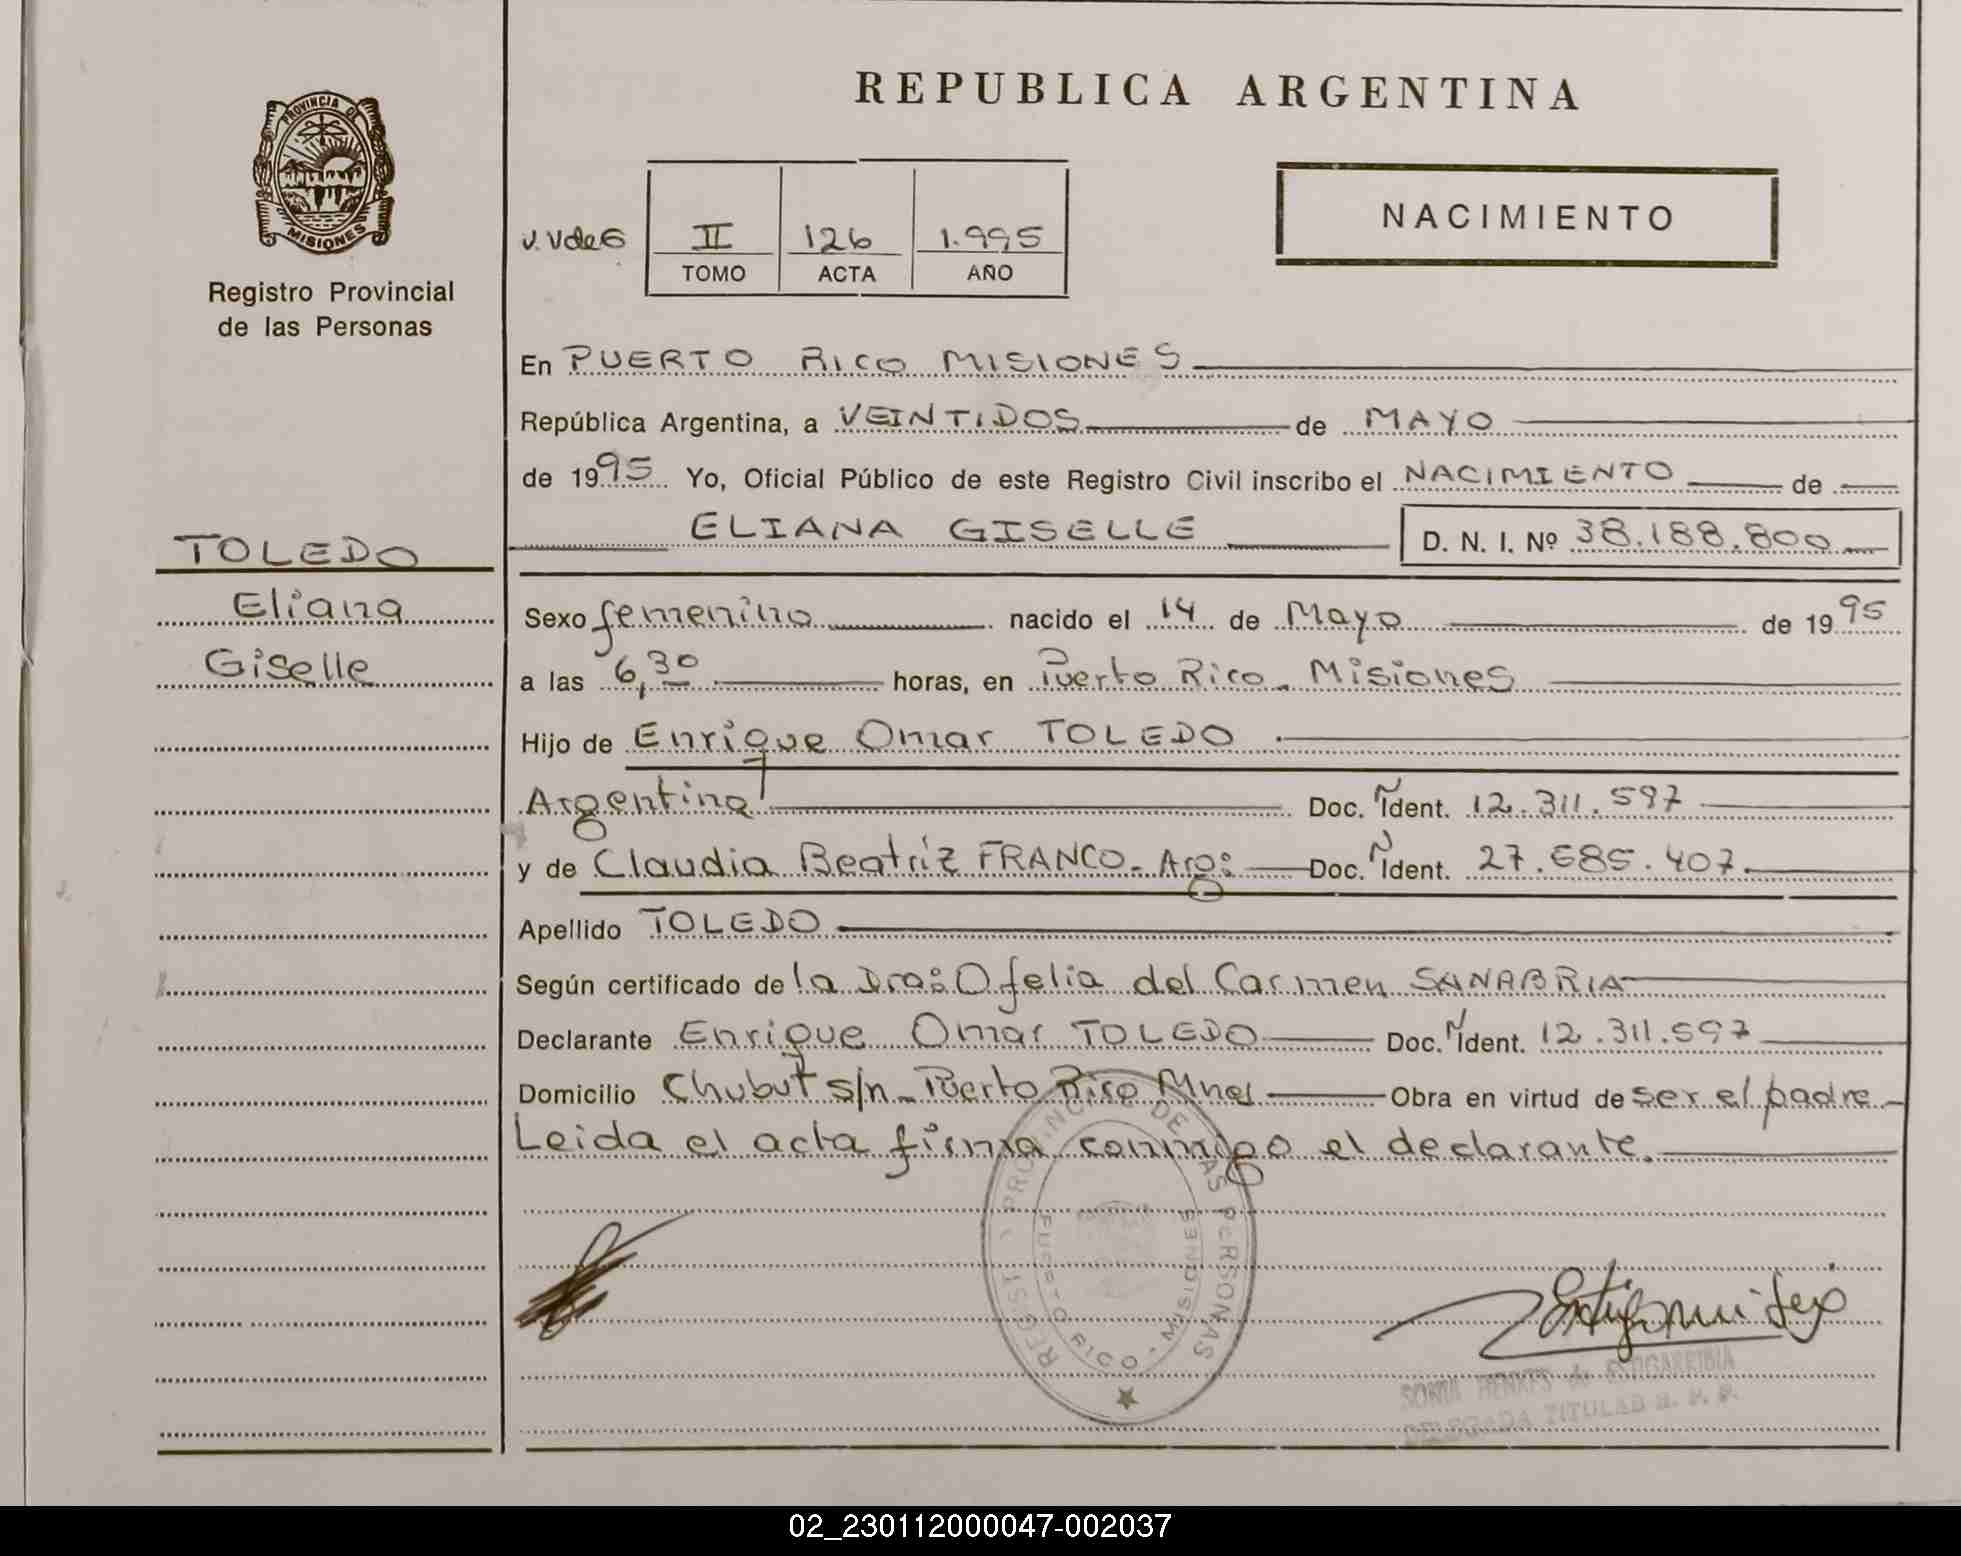 REPUBLICA ARGENTINA
PROVINCIA DE MISIONES
Registro Provincial
de las Personas
II 126 1.995
TOMO ACTA AÑO
NACIMIENTO
En PUERTO RICO MISIONES
República Argentina, a VEINTIDOS de MAYO
de 1995 Yo, Oficial Público de este Registro Civil inscribo el NACIMIENTO de
ELIANA GISELLE D. N. I. Nº 38.188.800
TOLEDO
Eliana
Giselle
Sexo femenino nacido el 14 de Mayo de 1995
a las 6,30 horas, en Puerto Rico. Misiones
Hijo de Enrique Omar TOLEDO
Argentino Doc. Ident. 12.311.597
y de Claudia Beatriz FRANCO - Arg: Doc. Ident. 27.685.407
Apellido TOLEDO
Según certificado de la Dra: Ofelia del Carmen SANABRIA
Declarante Enrique Omar TOLEDO Doc. Ident. 12.311.597
Domicilio Chubut s/n - Puerto Rico Mnes Obra en virtud de ser el padre
Leida el acta firma conmigo el declarante.
REGIST PROVINC DE LAS PERSONAS
PUERTO RICO - MISIONES
SONIA HENKES de ESTIGARRIBIA
DELEGADA TITULAR R. P. P.
02_230112000047-002037